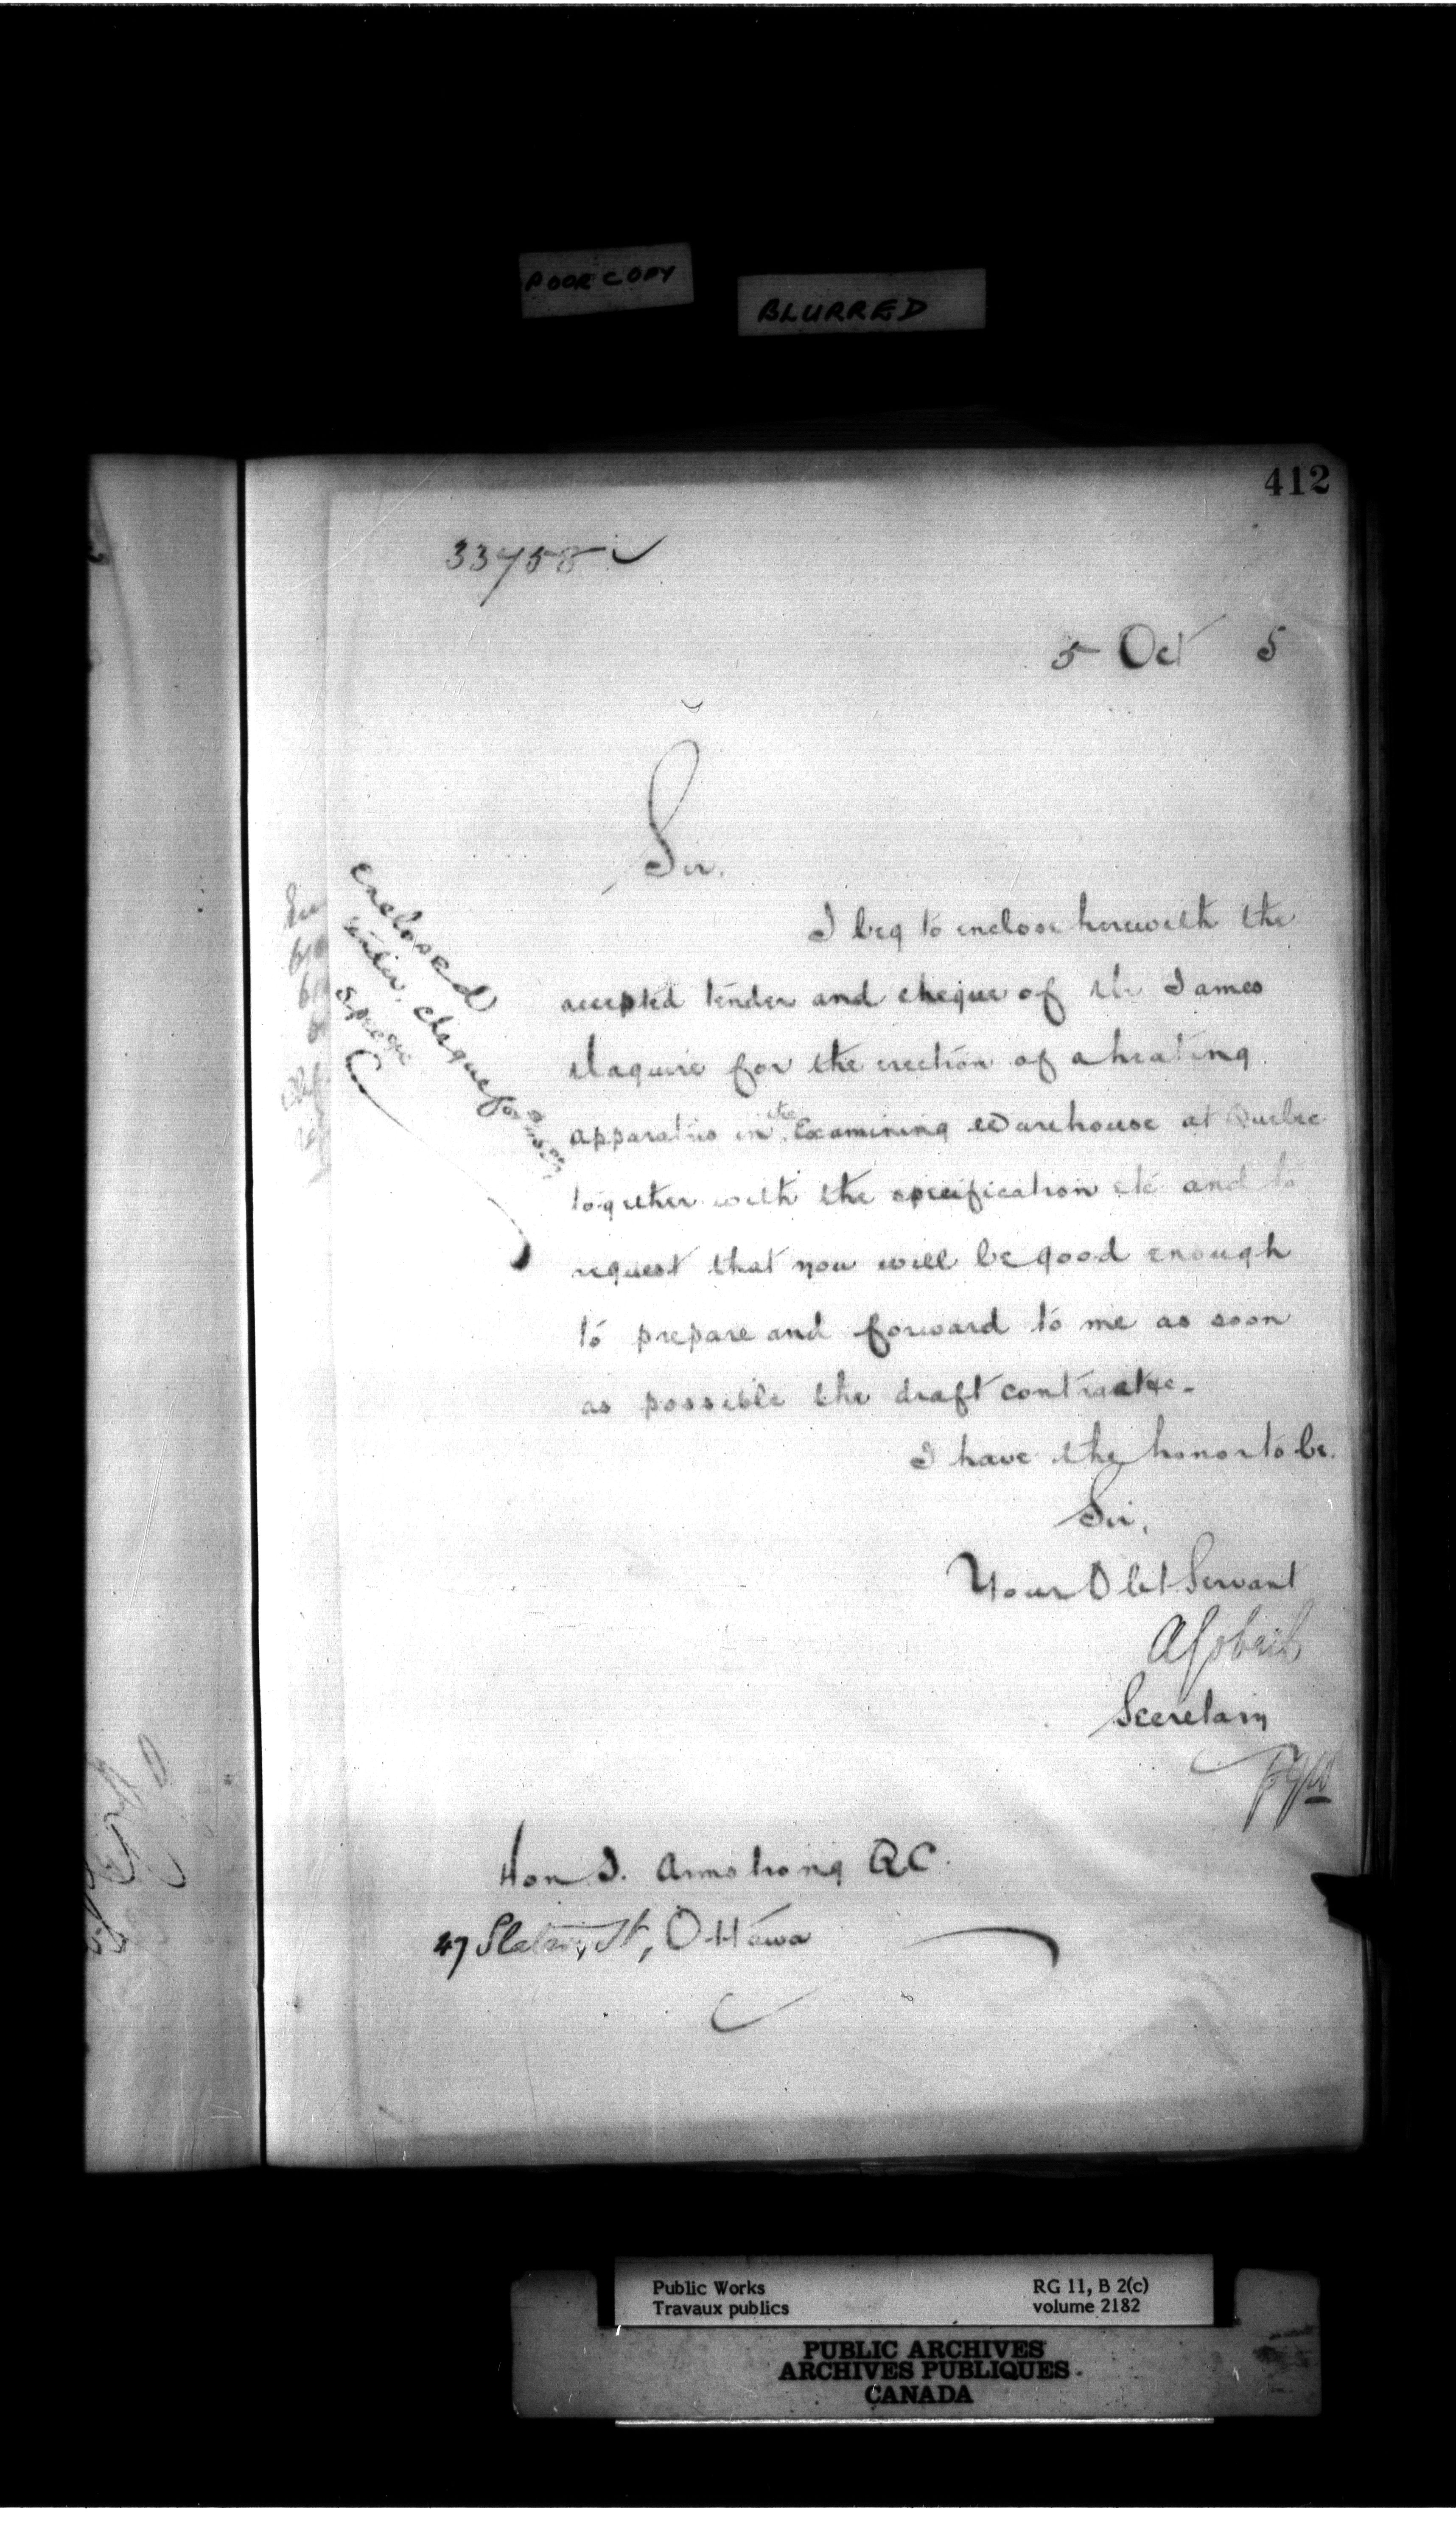 POOR COPY
BLURRED
412
33758
5 Oct 5
Sir,
I beg to enclose herewith the
accepted tender and cheque of Mr James
Maguire for the erection of a heating
apparatus in the Examining Warehouse at Quebec
together with the specification etc and to
request that you will be good enough
to prepare and forward to me as soon
as possible the draft contract
I have the honor to be
Sir,
Your Obt Servant
A Gobeil
Secretary
enclosed
tender, cheque for
specn
Hon J. Armstrong QC
47 Slater St, Ottawa
Public Works
Travaux publics
RG 11, B 2(c)
volume 2182
PUBLIC ARCHIVES
ARCHIVES PUBLIQUES
CANADA